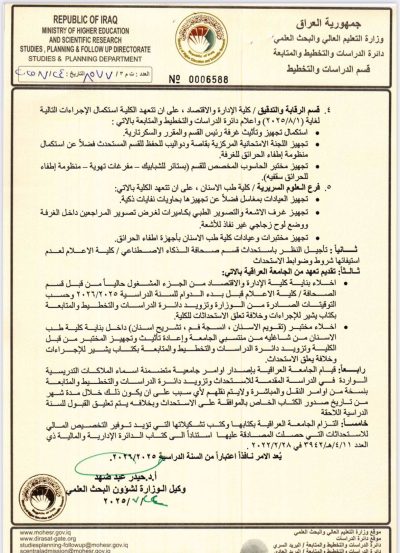 REPUBLIC OF IRAQ
MINISTRY OF HIGHER EDUCATION
AND SCIENTIFIC RESEARCH
STUDIES , PLANNING & FOLLOW UP DIRECTORATE
STUDIES & PLANNING DEPARTMENT
جمهورية العراق
وزارة التعليم العالي والبحث العلمي
دائرة الدراسات والتخطيط والمتابعة
قسم الدراسات والتخطيط
العدد : ت م ٣/
التاريخ :
№ 0006588
٤. قسم الرقابة والتدقيق / كلية الإدارة والاقتصاد ، على ان تتعهد الكلية استكمال الإجراءات التالية
لغاية (٢٠٢٥/٨/١) واعلام دائرة الدراسات والتخطيط والمتابعة بالاتي :
• استكمال تجهيز وتأثيث غرفة رئيس القسم والمقرر والسكرتارية.
• تجهيز اللجنة الامتحانية المركزية بقاصة ودواليب للحفظ للقسم المستحدث فضلاً عن استكمال
منظومة إطفاء الحرائق للغرفة.
• تجهيز مختبر الحاسوب المخصص للقسم (بستائر للشبابيك - مفرغات تهوية - منظومة إطفاء
للحرائق سقفيه).
٥. فرع العلوم السريرية / كلية طب الاسنان ، على ان تتعهد الكلية بالاتي:
• تجهيز العيادات بمغاسل فضلاً عن تجهيزها بحاويات نفايات ذكية.
• تجهيز غرف الاشعة والتصوير الطبي بكاميرات لغرض تصوير المراجعين داخل الغرفة
ووضع لوح زجاجي غير نفاذ للأشعة.
• تجهيز مختبرات وعيادات كلية طب الاسنان بأجهزة اطفاء الحرائق.
ثانياً : تأجيل النظر باستحداث قسم صحافة الذكاء الاصطناعي / كلية الاعلام لعدم
استيفائها شروط وضوابط الاستحداث
ثالثاً: تقديم تعهد من الجامعة العراقية بالاتي:
• اخلاء بناية كلية الإدارة والاقتصاد من الجزء المشغول حالياً من قبل قسم
الصحافة / كلية الاعلام قبل بدء الدوام للسنة الدراسية ٢٠٢٦/٢٠٢٥ وحسب
التوقيتات الصادرة من الوزارة وتزويد دائرة الدراسات والتخطيط والمتابعة
بكتاب يشير للإجراءات وخلافة تعلق الاستحداثات للكلية.
• اخلاء مختبر (تقويم الاسنان ، انسجة فم ، تشريح اسنان) داخل بناية كلية طب
الاسنان من شاغليه من منتسبي الجامعة وإعادة تأثيث وتجهيز المختبر من قبل
الكلية وتزويد دائرة الدراسات والتخطيط والمتابعة بكتاب يشير للإجراءات
وخلافة يعلق الاستحداث.
رابعاً : قيام الجامعة العراقية بإصدار اوامر جامعية متضمنة اسماء الملاكات التدريسية
الواردة في الدراسة المقدمة للاستحداث وتزويد دائرة الدراسات والتخطيط والمتابعة
بنسخة من اوامر النقل والمباشرة ولايتم نقلهم لأي سبب على ان يكون ذلك خلال مدة شهر
من تاريخ صدور الكتاب الخاص بالموافقة على الاستحداث وبخلافه يتم تعليق القبول للسنة
الدراسية اللاحقة
خامساً : التزام الجامعة العراقية بكتابها وكتب تشكيلاتها التي تؤيد توفير التخصيص المالي
للاستحداثات التي حصلت المصادقة عليها استناداً الى كتاب الدائرة الإدارية والمالية ذي
العدد ٣٩٤٢/هـ/١١/٤ في ٢٠٢٢/٢/٢٨.
يُعد الامر نافذاً اعتباراً من السنة الدراسية ٢٠٢٦/٢٠٢٥.
أ.د.حيدر عبد ضهد
وكيل الوزارة لشؤون البحث العلمي
٢٠٢٥/
www.mohesr.gov.iq
www.dirasat-gate.org
studiesplanning-followup@mohesr.gov.iq
scentraladmission@mohesr.gov.iq
موقع وزارة التعليم العالي والبحث العلمي
موقع دائرة الدراسات